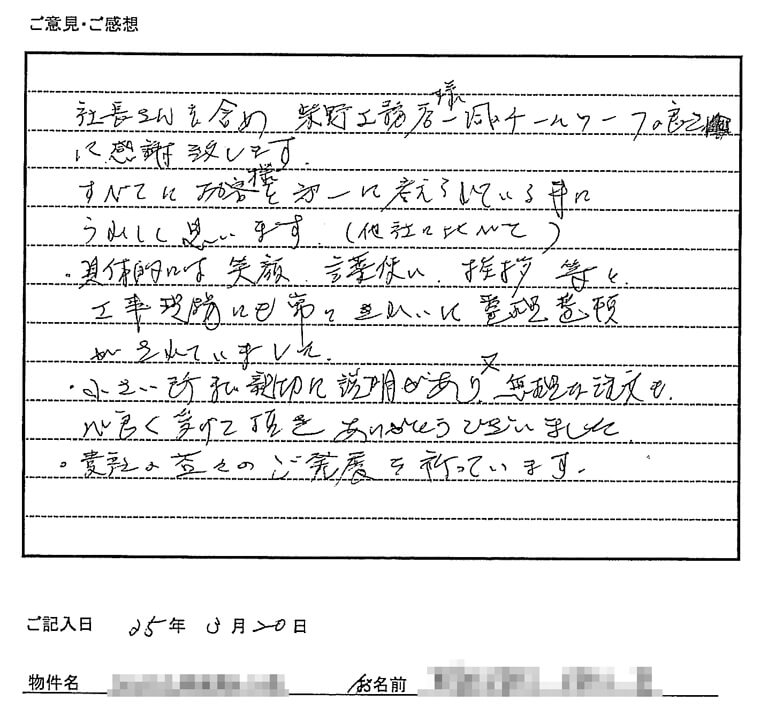 ご意見・ご感想
社長さんを含め 柴野工務店様一同のチームワークの良さ
に感謝致します。
すべてにお客様を第一に考えられている事に
うれしく思います。(他社に比べて)
・具体的には笑顔、言葉使い、挨拶 等々
工事現場にも常にきれいに整理整頓
がされていました。
・小さい所まで親切に説明があり、又無理な注文も
心良く受けて頂きありがとうございました。
・貴社の益々のご発展を祈っています。
ご記入日 25年 3月20日
物件名 お名前